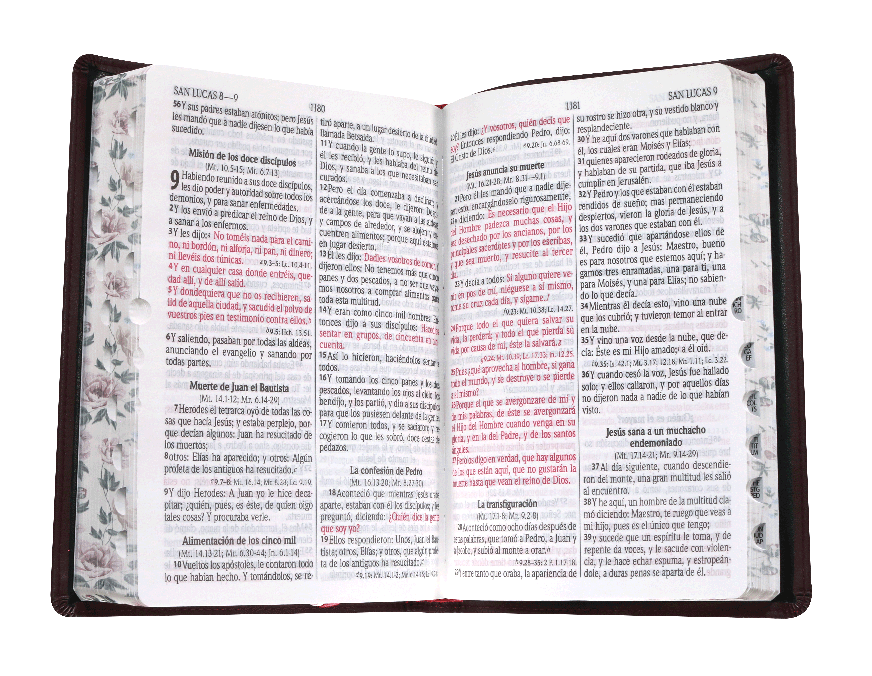 SAN LUCAS 8—9
1180
56Y sus padres estaban atónitos; pero Jesús
les mandó que a nadie dijesen lo que había
sucedido.
Misión de los doce discípulos
(Mt. 10.5-15; Mr. 6.7-13)
9 Habiendo reunido a sus doce discípulos,
les dio poder y autoridad sobre todos los
demonios, y para sanar enfermedades.
2Y los envió a predicar el reino de Dios, y
a sanar a los enfermos.
3Y les dijo: No toméis nada para el cami-
no, ni bordón, ni alforja, ni pan, ni dinero;
ni llevéis dos túnicas.
4Y en cualquier casa donde entréis, que-
dad allí, y de allí salid.
5Y dondequiera que no os recibieren, sa-
lid de aquella ciudad, y sacudid el polvo de
vuestros pies en testimonio contra ellos.
6Y saliendo, pasaban por todas las aldeas,
anunciando el evangelio y sanando por
todas partes.
Muerte de Juan el Bautista
(Mt. 14.1-12; Mr. 6.14-29)
7Herodes el tetrarca oyó de todas las co-
sas que hacía Jesús; y estaba perplejo, por-
que decían algunos: Juan ha resucitado de
los muertos;
8otros: Elías ha aparecido; y otros: Algún
profeta de los antiguos ha resucitado.
9Y dijo Herodes: A Juan yo le hice deca-
pitar; ¿quién, pues, es éste, de quien oigo
tales cosas? Y procuraba verle.
Alimentación de los cinco mil
(Mt. 14.13-21; Mr. 6.30-44; Jn. 6.1-14)
10Vueltos los apóstoles, le contaron todo
lo que habían hecho. Y tomándolos, se re-
tiró aparte, a un lugar desierto de la ciudad
llamada Betsaida.
11Y cuando la gente lo supo, le siguió; y
él les recibió, y les hablaba del reino de
Dios, y sanaba a los que necesitaban ser
curados.
12Pero el día comenzaba a declinar; y
acercándose los doce, le dijeron: Despi-
de a la gente, para que vayan a las aldeas
y campos de alrededor, y se alojen y en-
cuentren alimentos; porque aquí estamos
en lugar desierto.
13Él les dijo: Dadles vosotros de comer. Y
dijeron ellos: No tenemos más que cinco
panes y dos pescados, a no ser que vaya-
mos nosotros a comprar alimentos para
toda esta multitud.
14Y eran como cinco mil hombres. En-
tonces dijo a sus discípulos: Hacedlos
sentar en grupos, de cincuenta en cin-
cuenta.
15Así lo hicieron, haciéndolos sentar a
todos.
16Y tomando los cinco panes y los dos
pescados, levantando los ojos al cielo, los
bendijo, y los partió, y dio a sus discípulos
para que los pusiesen delante de la gente.
17Y comieron todos, y se saciaron; y re-
cogieron lo que les sobró, doce cestas de
pedazos.
La confesión de Pedro
(Mt. 16.13-20; Mr. 8.27-30)
18Aconteció que mientras Jesús oraba
aparte, estaban con él los discípulos; y les
preguntó, diciendo: ¿Quién dice la gente
que soy yo?
19Ellos respondieron: Unos, Juan el Bau-
tista; otros, Elías; y otros, que algún profe-
ta de los antiguos ha resucitado.
1181
SAN LUCAS 9
20Él les dijo: ¿Y vosotros, quién decís que
soy? Entonces respondiendo Pedro, dijo:
El Cristo de Dios.
Jesús anuncia su muerte
(Mt. 16.21-28; Mr. 8.31—9.1)
21Pero él les mandó que a nadie dije-
sen esto, encargándoselo rigurosamente,
22y diciendo: Es necesario que el Hijo
del Hombre padezca muchas cosas, y
sea desechado por los ancianos, por los
principales sacerdotes y por los escribas,
y que sea muerto, y resucite al tercer
día.
23Y decía a todos: Si alguno quiere ve-
nir en pos de mí, niéguese a sí mismo,
tome su cruz cada día, y sígame.
24Porque todo el que quiera salvar su
vida, la perderá; y todo el que pierda su
vida por causa de mí, éste la salvará.
25Pues, ¿qué aprovecha al hombre, si gana
todo el mundo, y se destruye o se pierde
a sí mismo?
26Porque el que se avergonzare de mí y
de mis palabras, de éste se avergonzará
el Hijo del Hombre cuando venga en su
gloria, y en la del Padre, y de los santos
ángeles.
27Pero os digo en verdad, que hay algunos
de los que están aquí, que no gustarán la
muerte hasta que vean el reino de Dios.
La transfiguración
(Mt. 17.1-8; Mr. 9.2-8)
28Aconteció como ocho días después de
estas palabras, que tomó a Pedro, a Juan y
a Jacobo, y subió al monte a orar.
29Y entre tanto que oraba, la apariencia de
su rostro se hizo otra, y su vestido blanco y
resplandeciente.
30Y he aquí dos varones que hablaban con
él, los cuales eran Moisés y Elías;
31quienes aparecieron rodeados de gloria,
y hablaban de su partida, que iba Jesús a
cumplir en Jerusalén.
32Y Pedro y los que estaban con él estaban
rendidos de sueño; mas permaneciendo
despiertos, vieron la gloria de Jesús, y a
los dos varones que estaban con él.
33Y sucedió que apartándose ellos de
él, Pedro dijo a Jesús: Maestro, bueno
es para nosotros que estemos aquí; y ha-
gamos tres enramadas, una para ti, una
para Moisés, y una para Elías; no sabien-
do lo que decía.
34Mientras él decía esto, vino una nube
que los cubrió; y tuvieron temor al entrar
en la nube.
35Y vino una voz desde la nube, que de-
cía: Éste es mi Hijo amado; a él oíd.
36Y cuando cesó la voz, Jesús fue hallado
solo; y ellos callaron, y por aquellos días
no dijeron nada a nadie de lo que habían
visto.
Jesús sana a un muchacho
endemoniado
(Mt. 17.14-21; Mr. 9.14-29)
37Al día siguiente, cuando descendie-
ron del monte, una gran multitud les salió
al encuentro.
38Y he aquí, un hombre de la multitud cla-
mó diciendo: Maestro, te ruego que veas a
mi hijo, pues es el único que tengo;
39y sucede que un espíritu le toma, y de
repente da voces, y le sacude con violen-
cia, y le hace echar espuma, y estropeán-
dole, a duras penas se aparta de él.